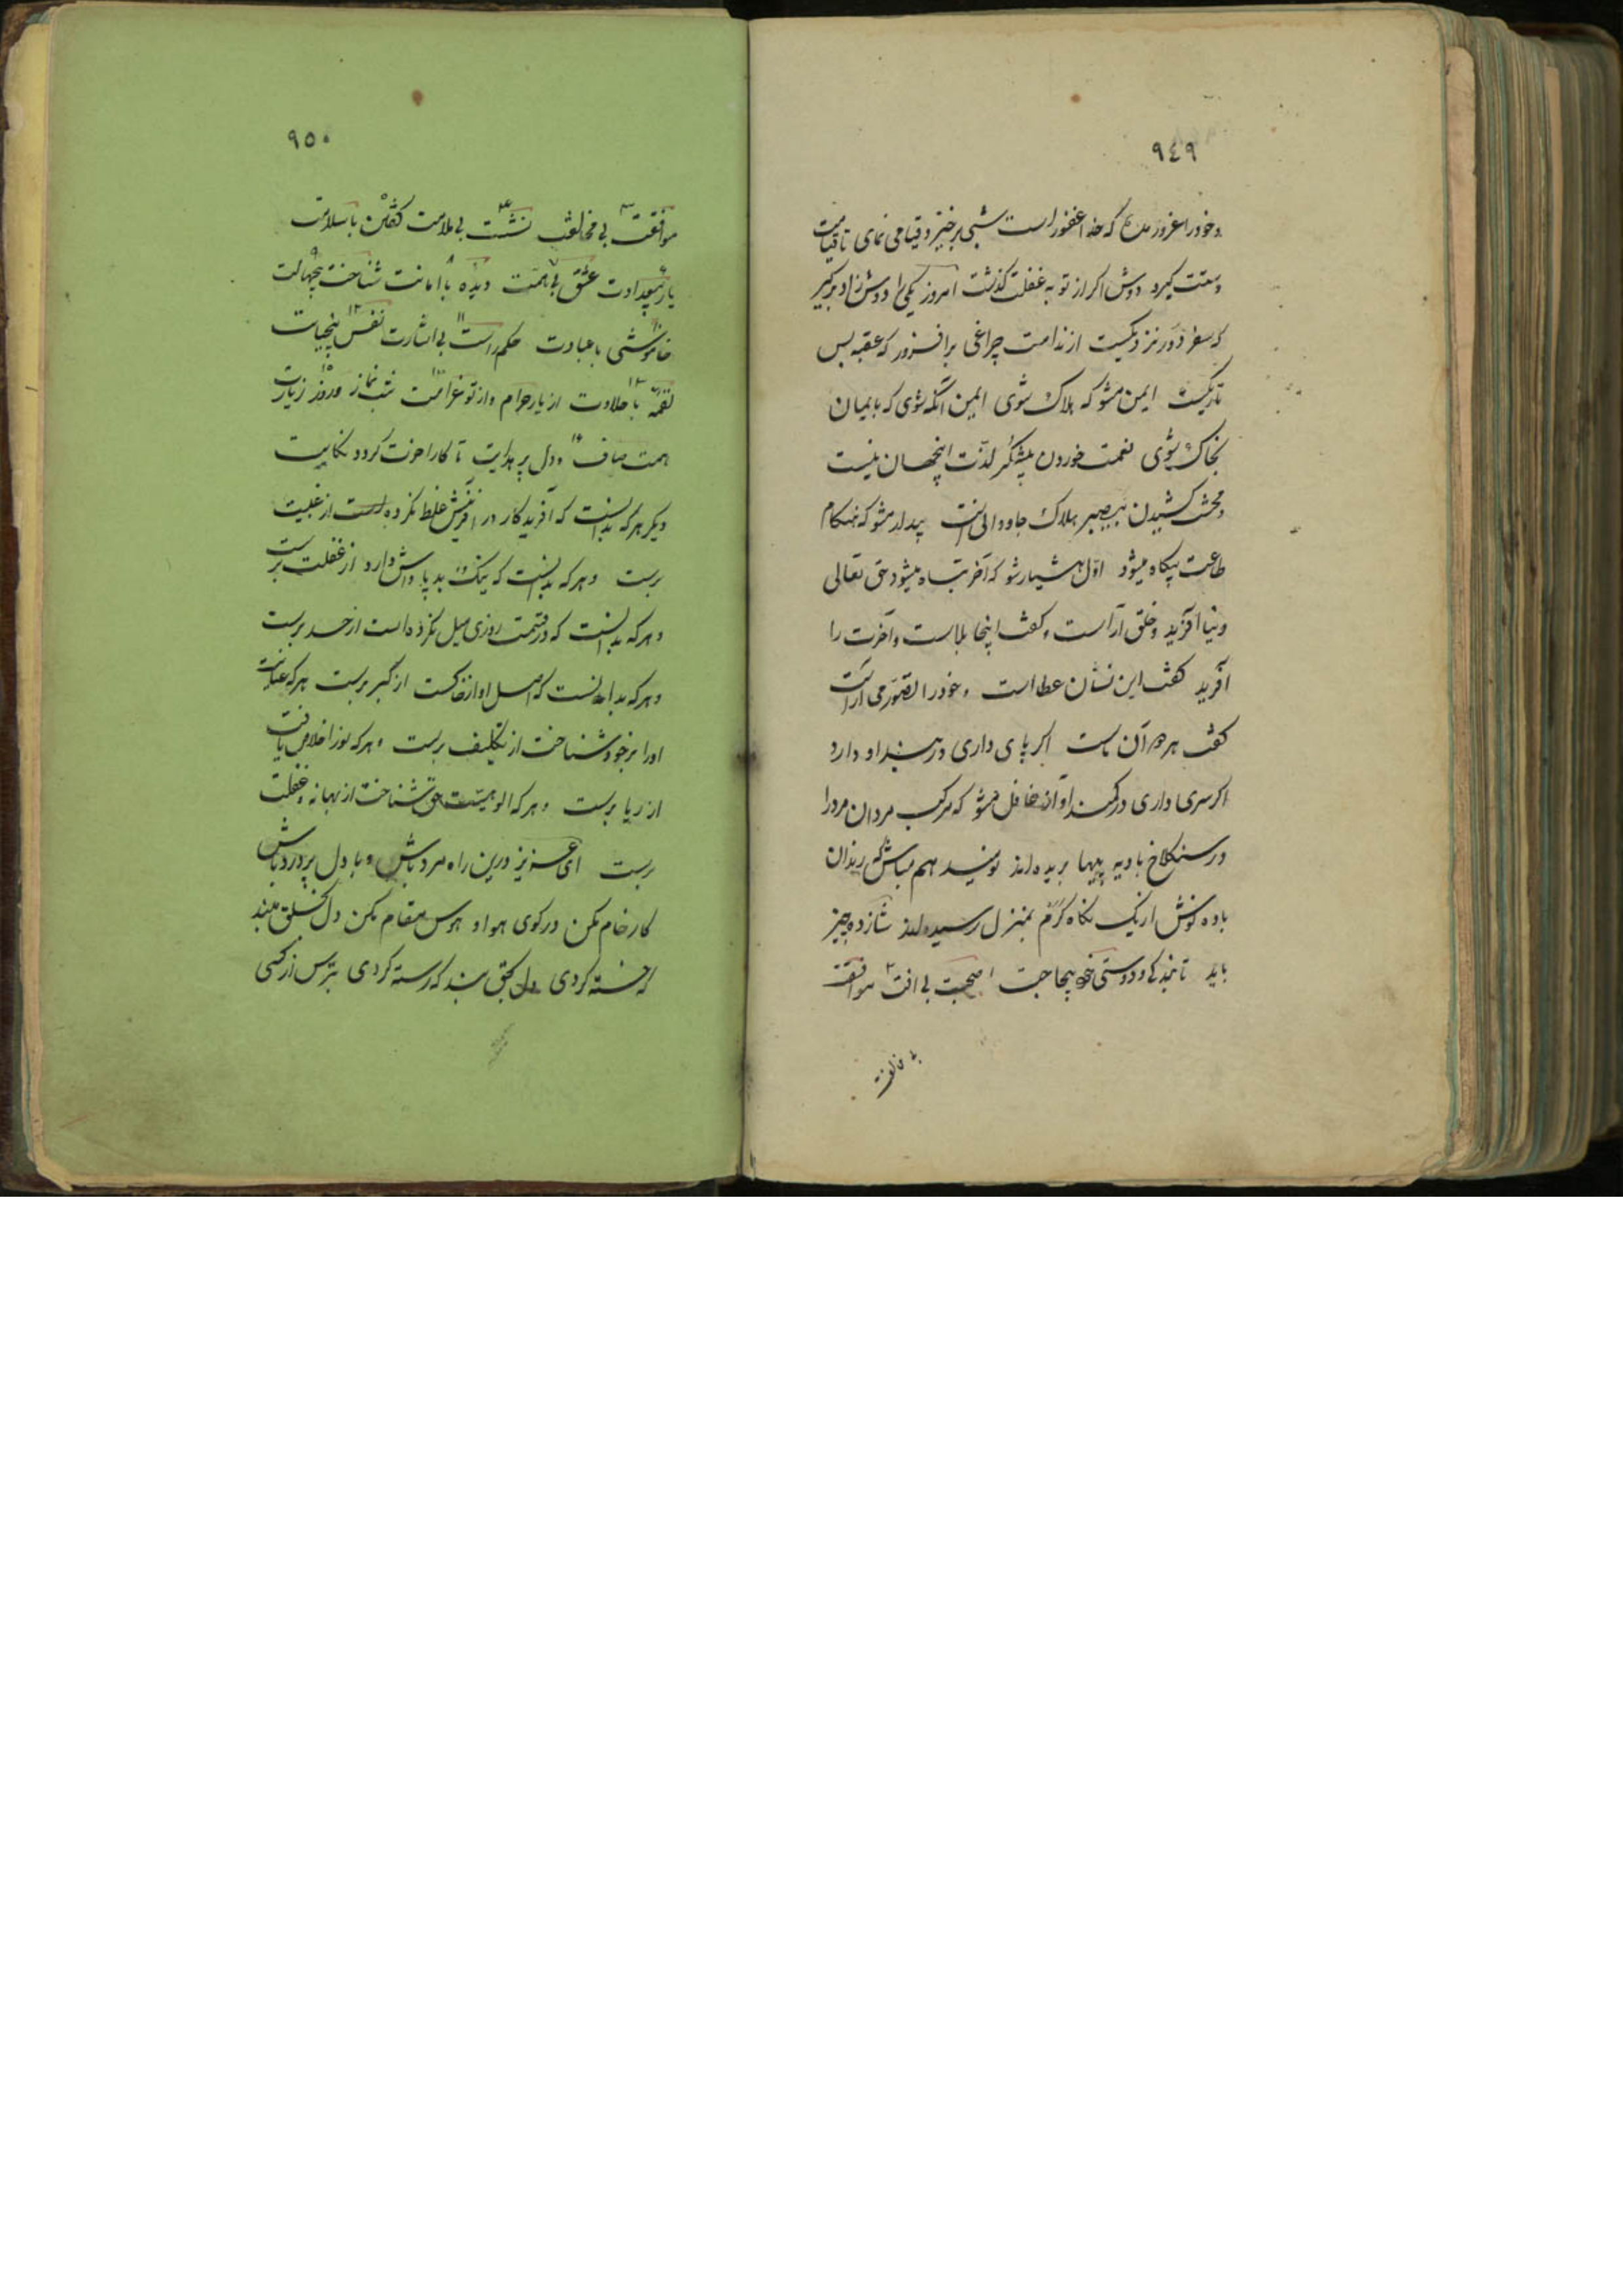 ۹٤۹
وخود را مغرور مدان که خدا غفور است شبی برخیز و قیامی نمای تا قیامت
دستت گیرد دوش اگر از تو به غفلت گذشت امروز یکی را دوش زاد برگیر
که سفر دور نزدیکست از ندامت چراغی برافروز که عقبه بس
تاریکست ایمن مشو که هلاک شوی ایمن آنگه شوی که با ایمان
بخاک شوی نعمت خوردن بیشکر لذت اینجهان نیست
ومحنت کشیدن بیصبر هلاک جاودانی است بیدار شو که هنگام
طاعت بیگاه میشود اول هشیار شو که آخر تباه میشود حق تعالی
دنیا آفرید وخلق آراست وگفت اینجا بلاست وآخرت را
آفرید گفت این نشان عطا است وخود را تصور می آراست
گفت هر دو آن ماست اگر پای داری در بند او دار و
اگر سری داری در کمند او از آن غافل مشو که مرکب مردان مرد را
در سنگلاخ بادیه پیها بریده اند نومید هم مباش که رندان
باده نوش از یک نگاه گرم بمنزل رسیده اند شانزده چیز
باید تا بندگی و دوستی بجا ١ صحبت بی آفت ٢ موافقت
بی مخالفت
۹۵۰
موافقت بی مخالفت نشست بی ملامت گفتن با سلامت
یار بیعداوت عشق بی تهمت دیده با امانت شناخت بیجهالت
خاموشی با عبادت حکم راست بی اشارت نفس بیخیانت
لقمه با حلاوت از یار حرام و از تو غرامت شب نماز وروز زیارت
همت صاف ودل پر هدایت تا کار آخرت گردد کفایت
دیگر هرکه بدانست که آفریدگار در آفرینش غلط نکرده است از غیبت
برست وهرکه بدانست که نیک و بد پاداش دارد از غفلت برست
وهرکه بدانست که در قسمت روزی میل نکرده است از حسد برست
وهرکه بدانست که اصل او از خاکست از کبر برست هرکه عنایت
اورا بر خود شناخت از تکلیف برست وهرکه نور اخلاص یافت
از ریا برست وهرکه الوهیت حق شناخت از بهانه وغفلت
برست ای عزیز درین راه مرد باش وبا دل پر درد باش
کار خام مکن در کوی هوا و هوس مقام مکن دل بخلق مبند
که خسته گردی دل بحق بند که رسته گردی بترس از کسی